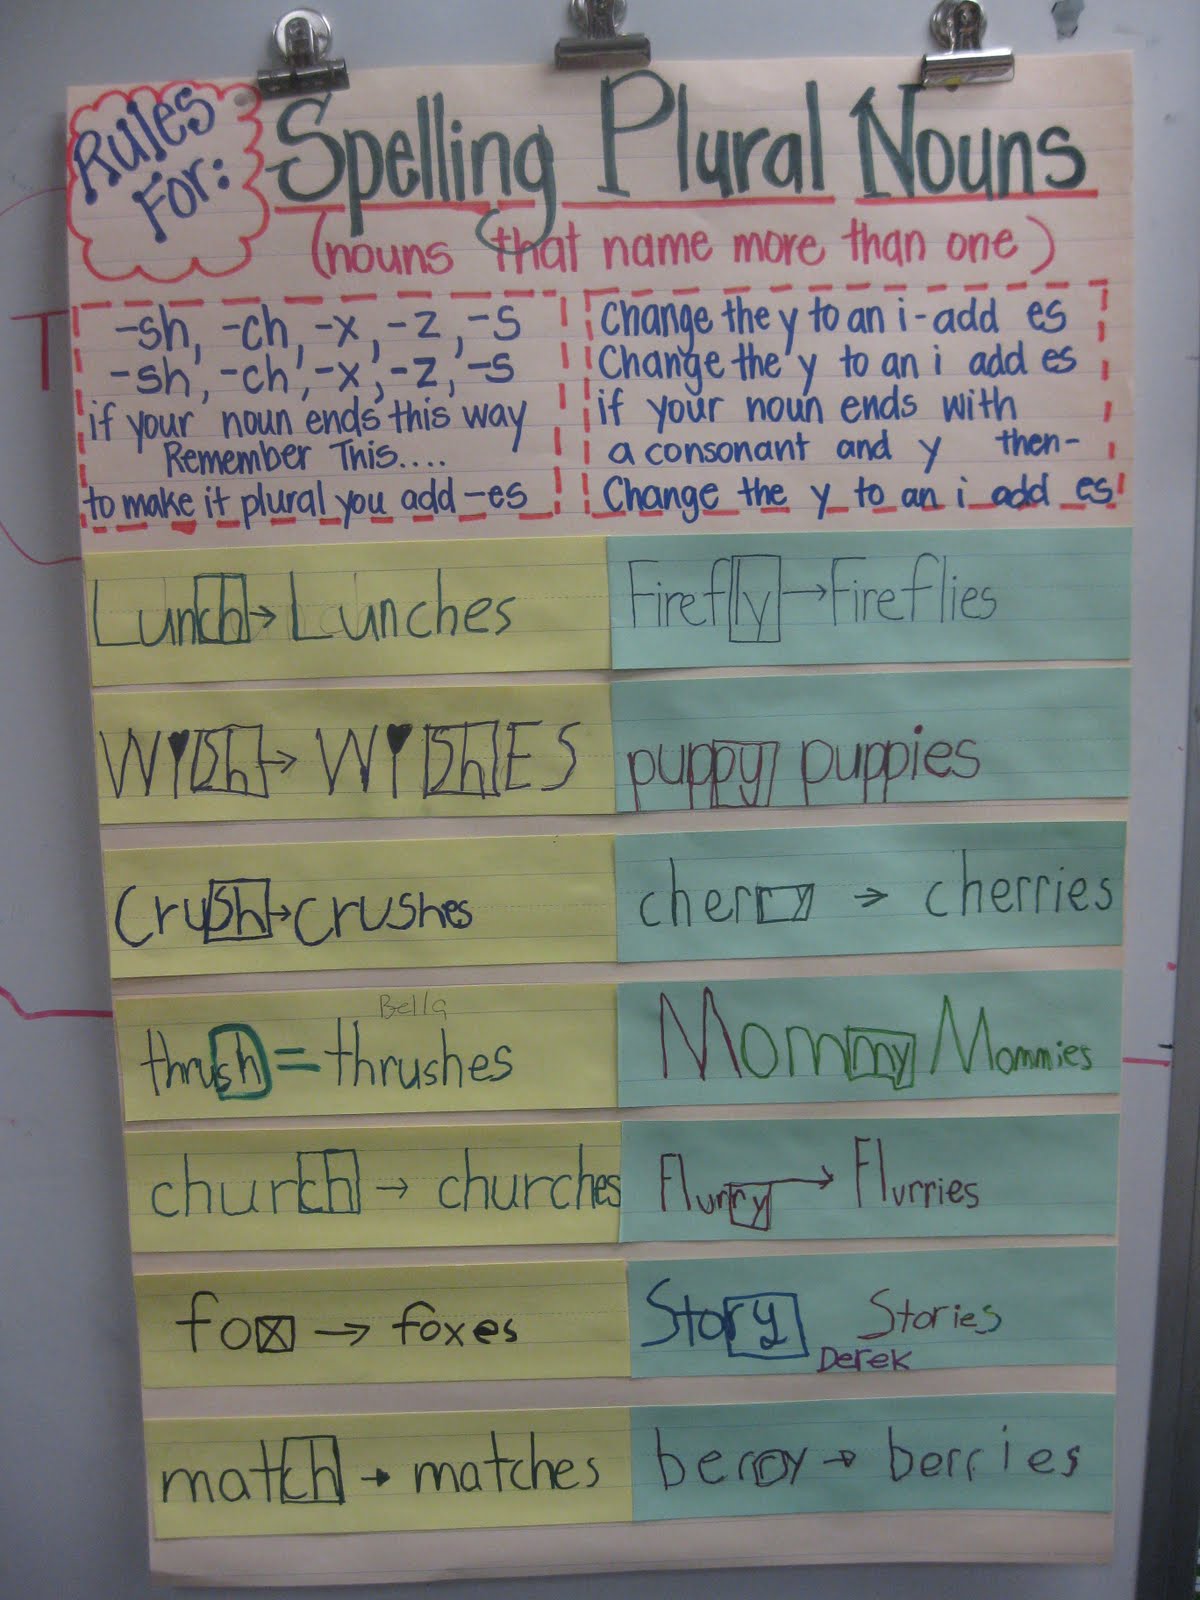 Rules
For:
Spelling Plural Nouns
(nouns that name more than one)
-sh, -ch, -x, -z, -s
-sh, -ch, -x, -z, -s
if your noun ends this way
Remember This....
to make it plural you add -es
Change the y to an i-add es
Change the y to an i add es
if your noun ends with
a consonant and y then-
Change the y to an i add es
Lunch → Lunches
Wish → WishES
Crush → crushes
Bella
thrush = thrushes
church → churches
fox → foxes
match → matches
Firefly → Fireflies
puppy puppies
cherry → cherries
Mommy Mommies
Flurry → Flurries
Story Stories
Derek
berry → berries
T